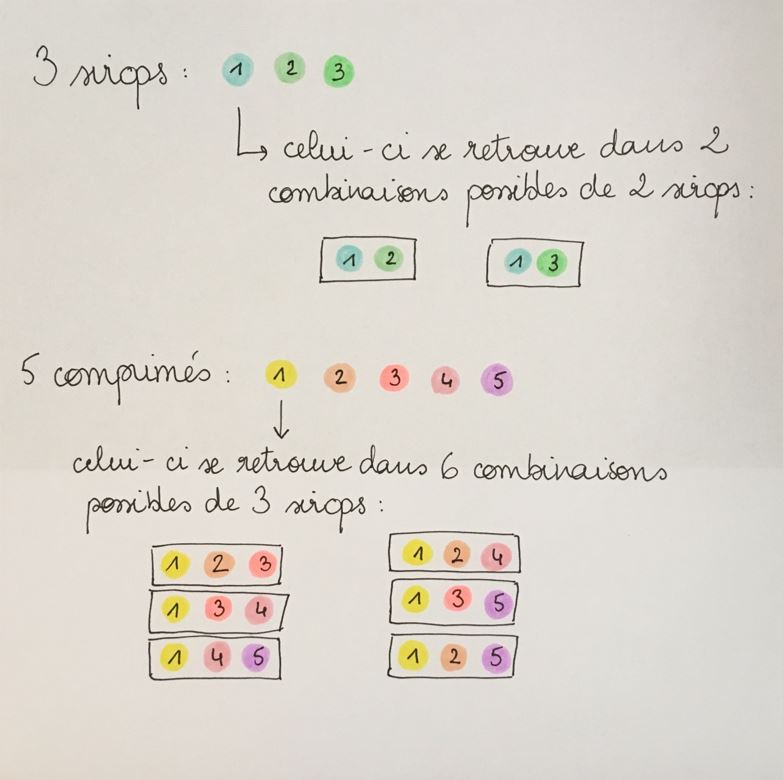 3 sirops : 1 2 3
celui-ci se retrouve dans 2
combinaisons possibles de 2 sirops :
1 2 1 3
5 comprimés : 1 2 3 4 5
celui-ci se retrouve dans 6 combinaisons
possibles de 3 sirops :
1 2 3 1 2 4
1 3 4 1 3 5
1 4 5 1 2 5